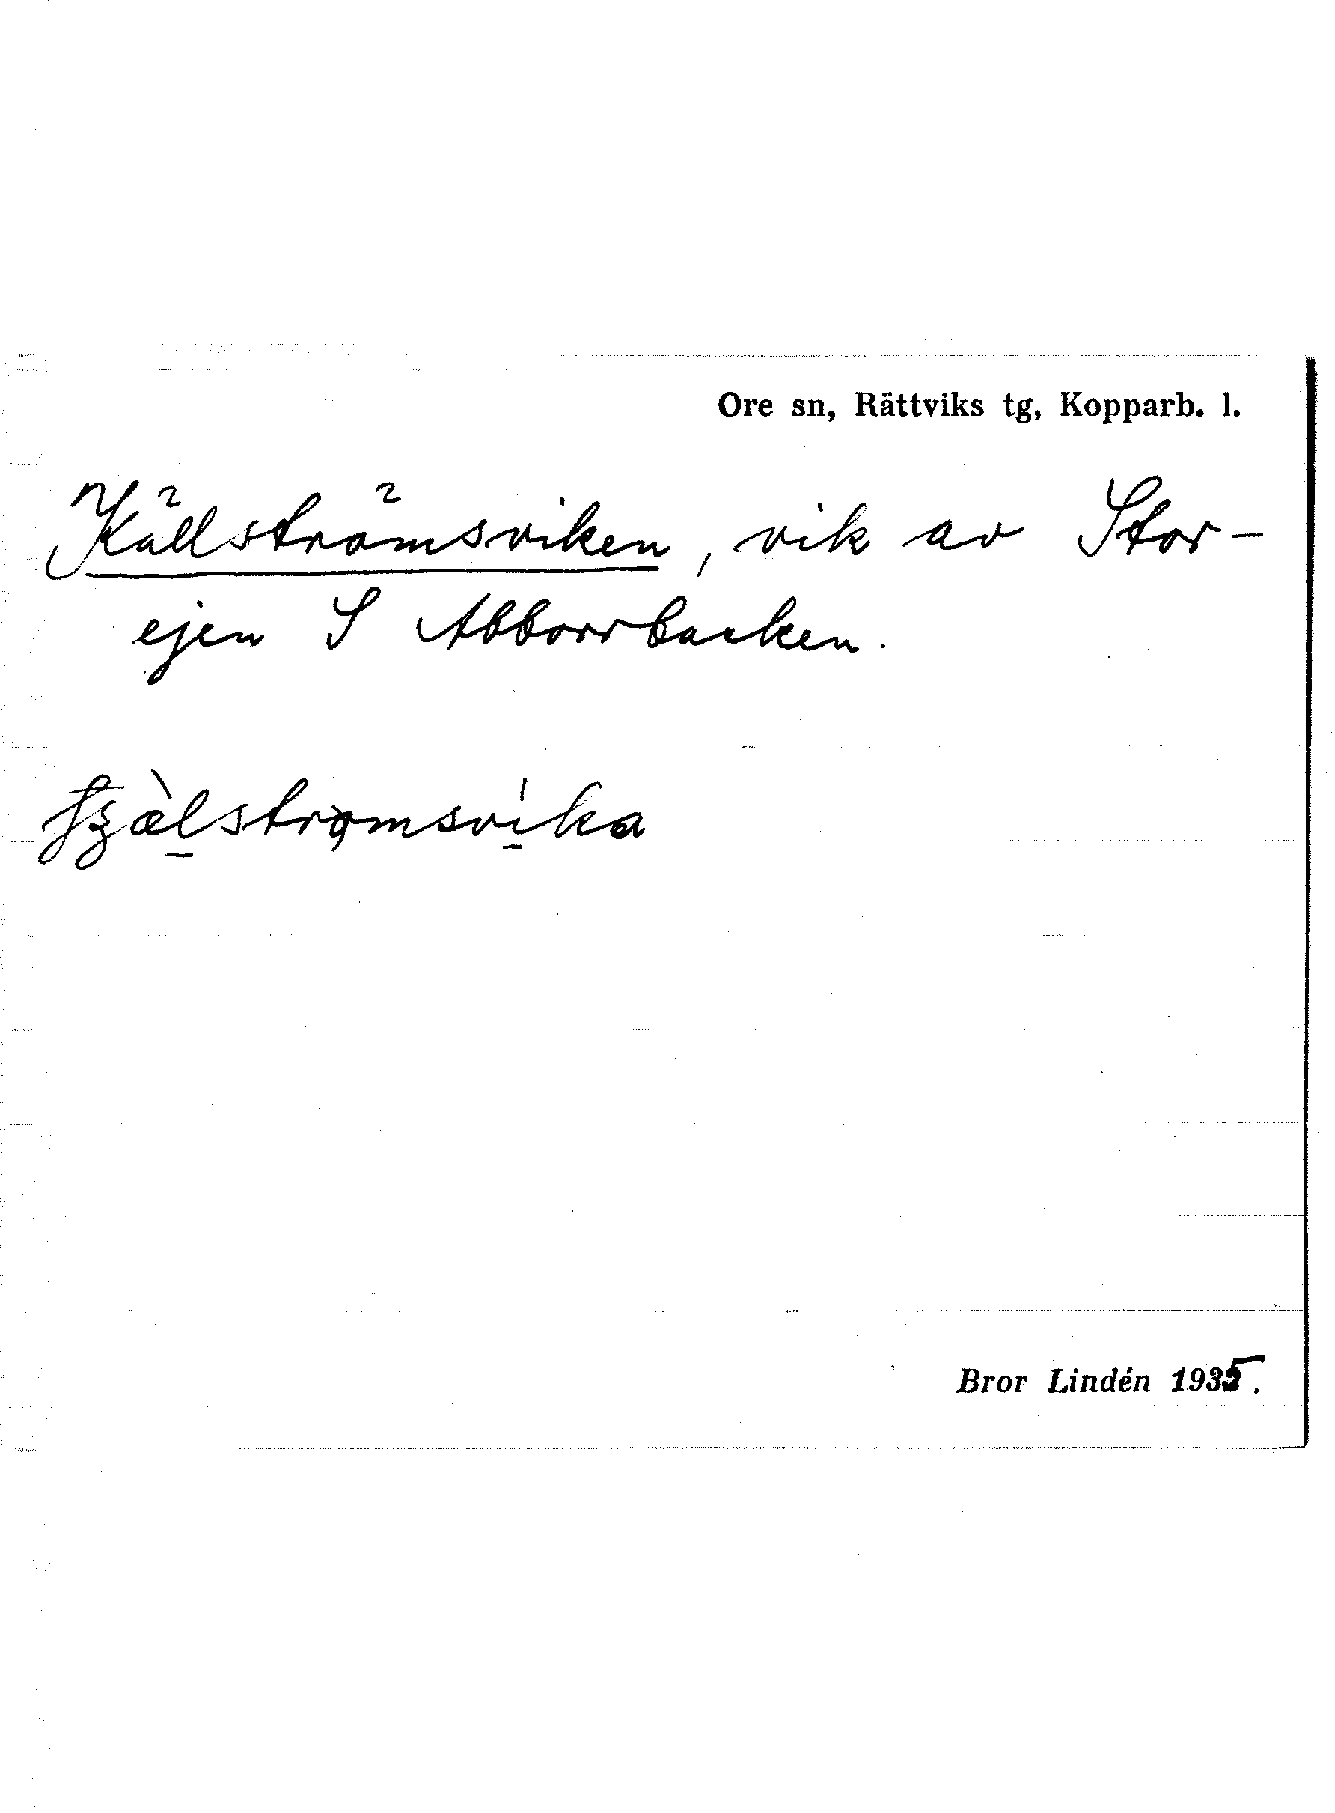 Ore sn, Rättviks tg, Kopparb. l.
Källströmsviken, vik av Stor-
ejen S Abborrbacken.
Bror Lindén 1935.